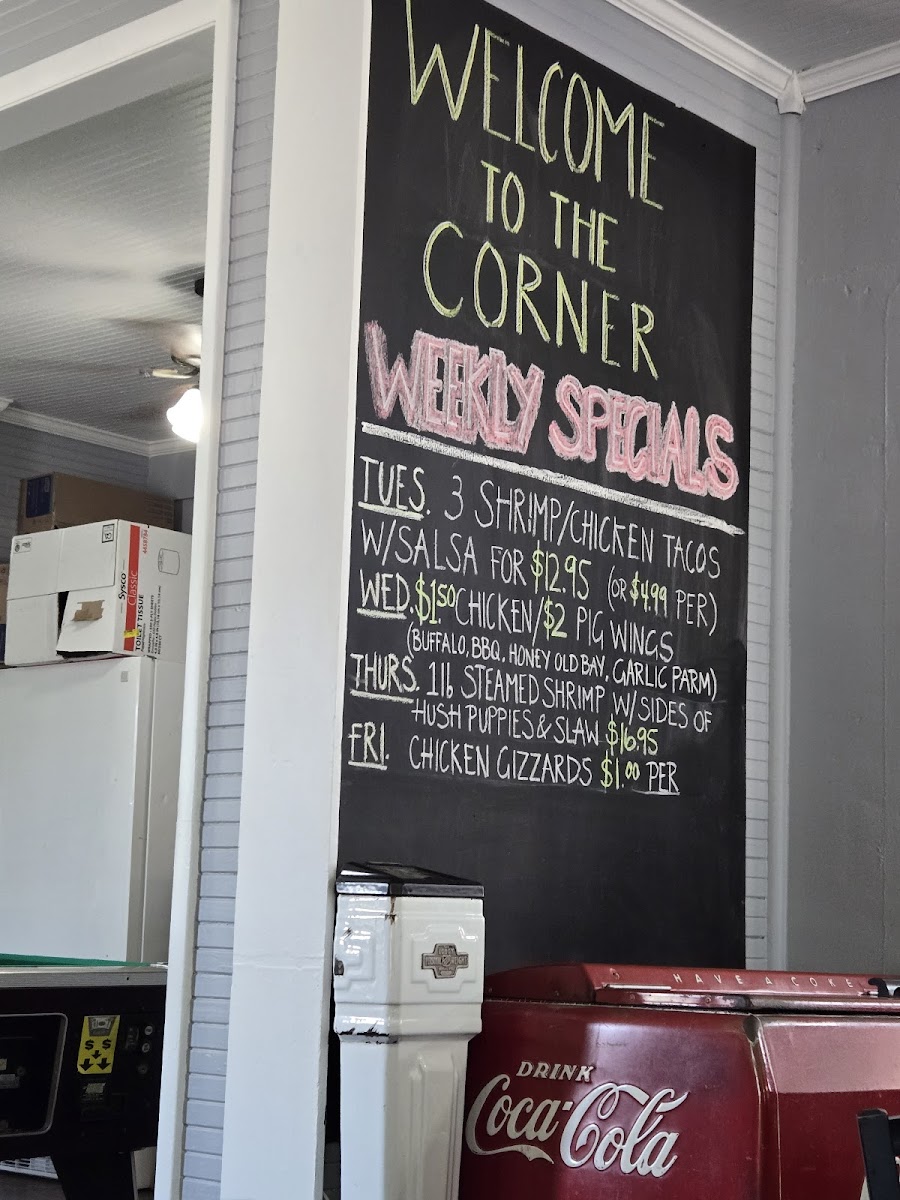 WELCOME
TO THE
CORNER
WEEKLY SPECIALS
TUES. 3 SHRIMP/CHICKEN TACOS
W/SALSA FOR $12.95 (OR $4.99 PER)
WED. $1.50 CHICKEN/$2 PIG WINGS
(BUFFALO, BBQ, HONEY OLD BAY, GARLIC PARM)
THURS. 1lb STEAMED SHRIMP W/SIDES OF
HUSH PUPPIES & SLAW $16.95
FRI. CHICKEN GIZZARDS $1.00 PER
Sysco
Classic
TOILET TISSUE
$ $
HAVE A COKE
DRINK
Coca-Cola